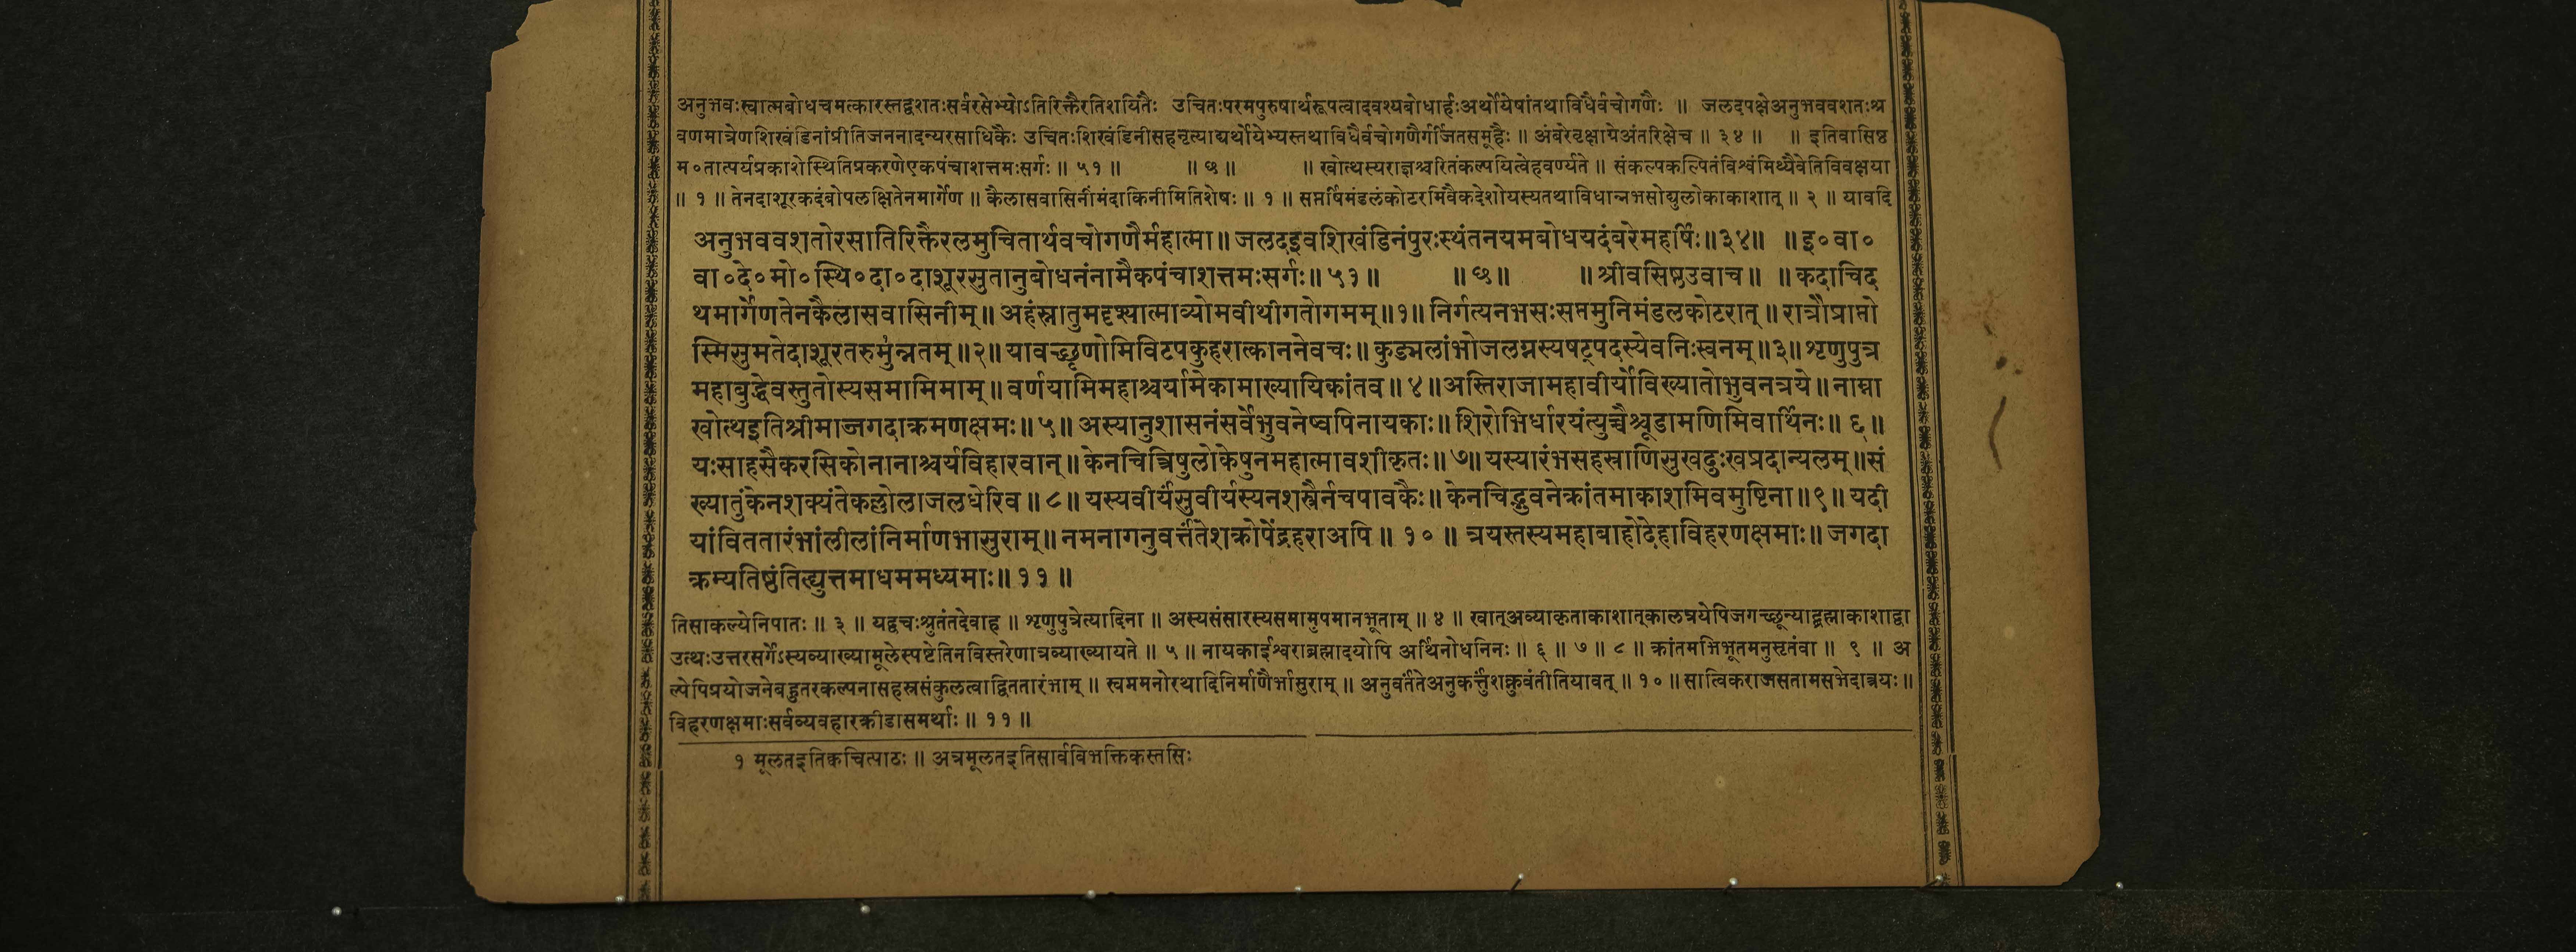 अनुभवःस्वात्मबोधचमत्कारस्तद्वशतःसर्वरसेभ्योऽतिरिक्तैरतिशयितैः उचितःपरमपुरुषार्थरूपत्वादवश्यबोधार्हःअर्थोयेषांतथाविधैर्वचोगणैः ॥ जलदपक्षेअनुभववशतःश्र
वणमात्रेणशिखंडिनांप्रीतिजननादन्यरसाधिकैः उचितःशिखंडिनीसहनृत्याद्यर्थोयेभ्यस्तथाविधैर्वचोगणैर्गर्जितसमूहैः ॥ अंबरेवृक्षाग्रेअंतरिक्षेच ॥ ३४ ॥ ॥ इतिवासिष्ठ
म०तात्पर्यप्रकाशेस्थितिप्रकरणेएकपंचाशत्तमःसर्गः ॥ ५१ ॥ ॥ छ ॥ ॥ खोत्थस्यराज्ञश्चरितंकल्पयित्वेहवर्ण्यते ॥ संकल्पकल्पितंविश्वंमिथ्यैवेतिविवक्षया
॥ १ ॥ तेनदाशूरकदंबोपलक्षितेनमार्गेण ॥ कैलासवासिनींमंदाकिनीमितिशेषः ॥ १ ॥ सप्तर्षिमंडलंकोटरमिवैकदेशोयस्यतथाविधान्नभसोद्युलोकाकाशात् ॥ २ ॥ यावदि
अनुभववशतोरसातिरिक्तैरलमुचितार्थवचोगणैर्महात्मा ॥ जलदइवशिखंडिनंपुरःस्थंतनयमबोधयदंबरेमहर्षिः ॥ ३४ ॥ ॥ इ०वा०
वा०दे०मो०स्थि०दा०दाशूरसुतानुबोधनंनामैकपंचाशत्तमःसर्गः ॥ ५१ ॥ ॥ छ ॥ ॥ श्रीवसिष्ठउवाच ॥ ॥ कदाचिद
थमार्गेणतेनकैलासवासिनीम् ॥ अहंस्नातुमदृश्यात्माव्योमवीथीगतोगमम् ॥ १ ॥ निर्गत्यनभसःसप्तमुनिमंडलकोटरात् ॥ रात्रौप्राप्तो
स्मिसुमतेदाशूरतरुमुन्नतम् ॥ २ ॥ यावच्छृणोमिविटपकुहरात्काननेवचः ॥ कुड्मलांभोजलग्नस्यषट्पदस्येवनिःस्वनम् ॥ ३ ॥ शृणुपुत्र
महाबुद्धेवस्तुतोस्यसमामिमाम् ॥ वर्णयामिमहाश्चर्यामेकामाख्यायिकांतव ॥ ४ ॥ अस्तिराजामहावीर्योविख्यातोभुवनत्रये ॥ नाम्ना
खोत्थइतिश्रीमाञ्जगदाक्रमणक्षमः ॥ ५ ॥ अस्यानुशासनंसर्वेभुवनेष्वपिनायकाः ॥ शिरोभिर्धारयंत्युच्चैश्चूडामणिमिवार्थिनः ॥ ६ ॥
यःसाहसैकरसिकोनानाश्चर्यविहारवान् ॥ केनचित्त्रिषुलोकेषुनमहात्मावशीकृतः ॥ ७ ॥ यस्यारंभसहस्राणिसुखदुःखप्रदान्यलम् ॥ सं
ख्यातुंकेनशक्यंतेकल्लोलाजलधेरिव ॥ ८ ॥ यस्यवीर्यंसुवीर्यस्यनशस्त्रैर्नचपावकैः ॥ केनचिद्भुवनेक्रांतमाकाशमिवमुष्टिना ॥ ९ ॥ यदी
यांविततारंभांलीलांनिर्माणभासुराम् ॥ नमनागनुवर्त्तंतेशक्रोपेंद्रहराअपि ॥ १० ॥ त्रयस्तस्यमहाबाहोदेहाविहरणक्षमाः ॥ जगदा
क्रम्यतिष्ठंतित्द्युत्तमाधममध्यमाः ॥ ११ ॥
तिसाकल्येनिपातः ॥ ३ ॥ यद्वचःश्रुतंतदेवाह ॥ शृणुपुत्रेत्यादिना ॥ अस्यसंसारस्यसमामुपमानभूताम् ॥ ४ ॥ खात्अव्याकृताकाशात्कालत्रयेपिजगच्छून्याद्ब्रह्माकाशाद्वा
उत्थःउत्तरसर्गेऽस्यव्याख्यामूलेस्पष्टेतिनविस्तरेणात्रव्याख्यायते ॥ ५ ॥ नायकाईश्वराब्रह्मादयोपि अर्थिनोधनिनः ॥ ६ ॥ ७ ॥ ८ ॥ क्रांतमभिभूतमनुसृतंवा ॥ ९ ॥ अ
ल्पेपिप्रयोजनेबहुतरकल्पनासहस्रसंकुलत्वाद्विततारंभाम् ॥ स्वममनोरथादिनिर्माणैर्भासुराम् ॥ अनुवर्तंतेअनुकर्त्तुंशक्नुवंतीतियावत् ॥ १० ॥ सात्विकराजसतामसभेदात्रयः ॥
विहरणक्षमाःसर्वव्यवहारक्रीडासमर्थाः ॥ ११ ॥
१ मूलतइतिक्वचित्पाठः ॥ अत्रमूलतइतिसार्वविभक्तिकस्तसिः